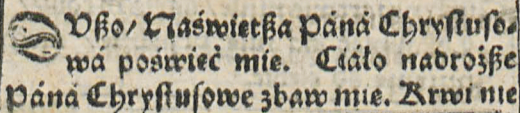 DVßo/ Naświetßa Páná Chrystuso⸗
wá poświeć mie. Ciáło nadrożße
Páná Chrystusowe zbaw mie. Krwi nie